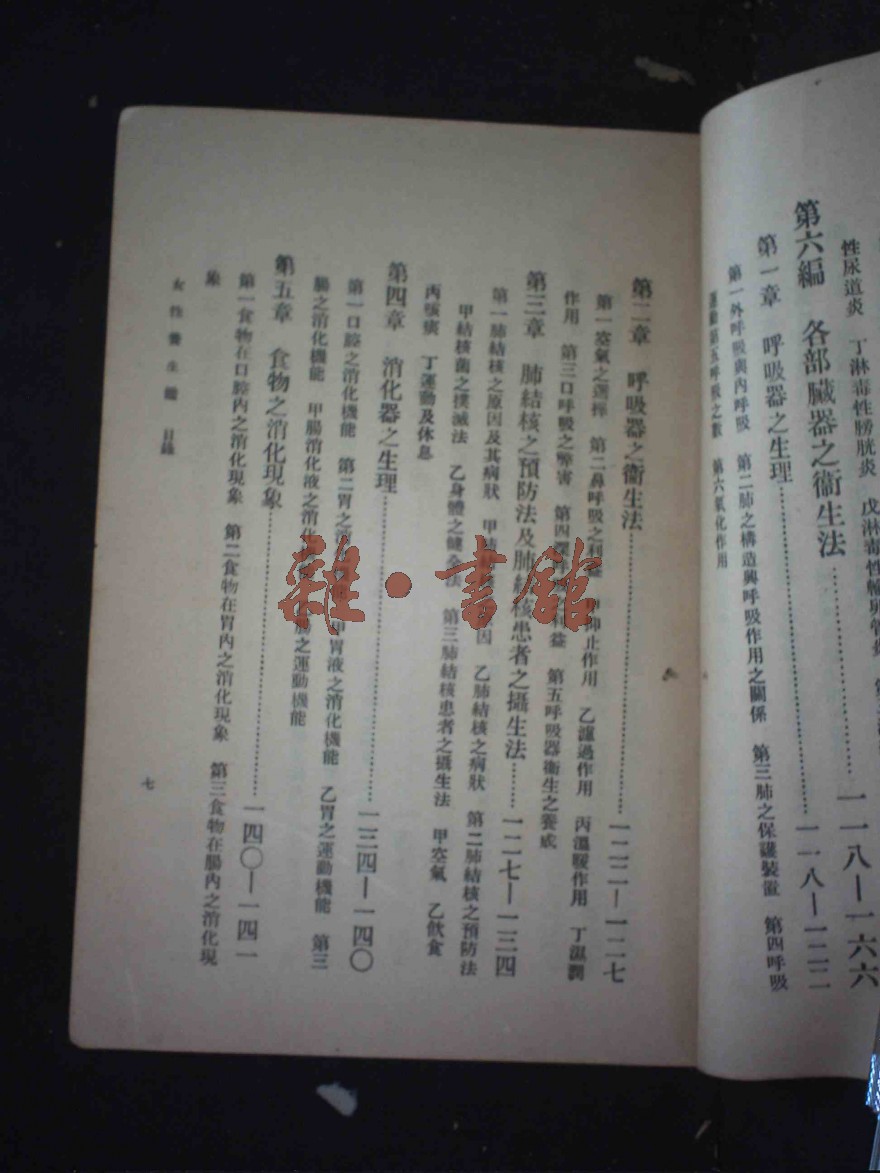 性尿道炎　丁淋毒性膀胱炎　戊淋毒性輸卵管炎
第六編　各部臟器之衞生法……一一八—一六六
第一章　呼吸器之生理……一一八—一二二
第一外呼吸與內呼吸　第二肺之構造與呼吸作用之關係　第三肺之保護裝置　第四呼吸
運動第五呼吸之數　第六氧化作用
第二章　呼吸器之衞生法……一二二—一二七
第一空氣之選擇　第二鼻呼吸之利益　甲抑止作用　乙濾過作用　丙溫暖作用　丁濕潤
作用　第三口呼吸之弊害　第四深呼吸之利益　第五呼吸器衞生之養成
第三章　肺結核之預防法及肺結核患者之攝生法……一二七—一三四
第一肺結核之原因及其病狀　甲肺結核之原因　乙肺結核之病狀　第二肺結核之預防法
甲結核菌之撲滅法　乙身體之健全法　第三肺結核患者之攝生法　甲空氣　乙飲食
丙咳痰　丁運動及休息
第四章　消化器之生理……一三四—一四〇
第一口腔之消化機能　第二胃之消化機能　甲胃液之消化機能　乙胃之運動機能　第三
腸之消化機能　甲腸消化液之消化機能　乙腸之運動機能
第五章　食物之消化現象……一四〇—一四一
第一食物在口腔內之消化現象　第二食物在胃內之消化現象　第三食物在腸內之消化現
象
女性養生鑑　目錄
七
雜·書館